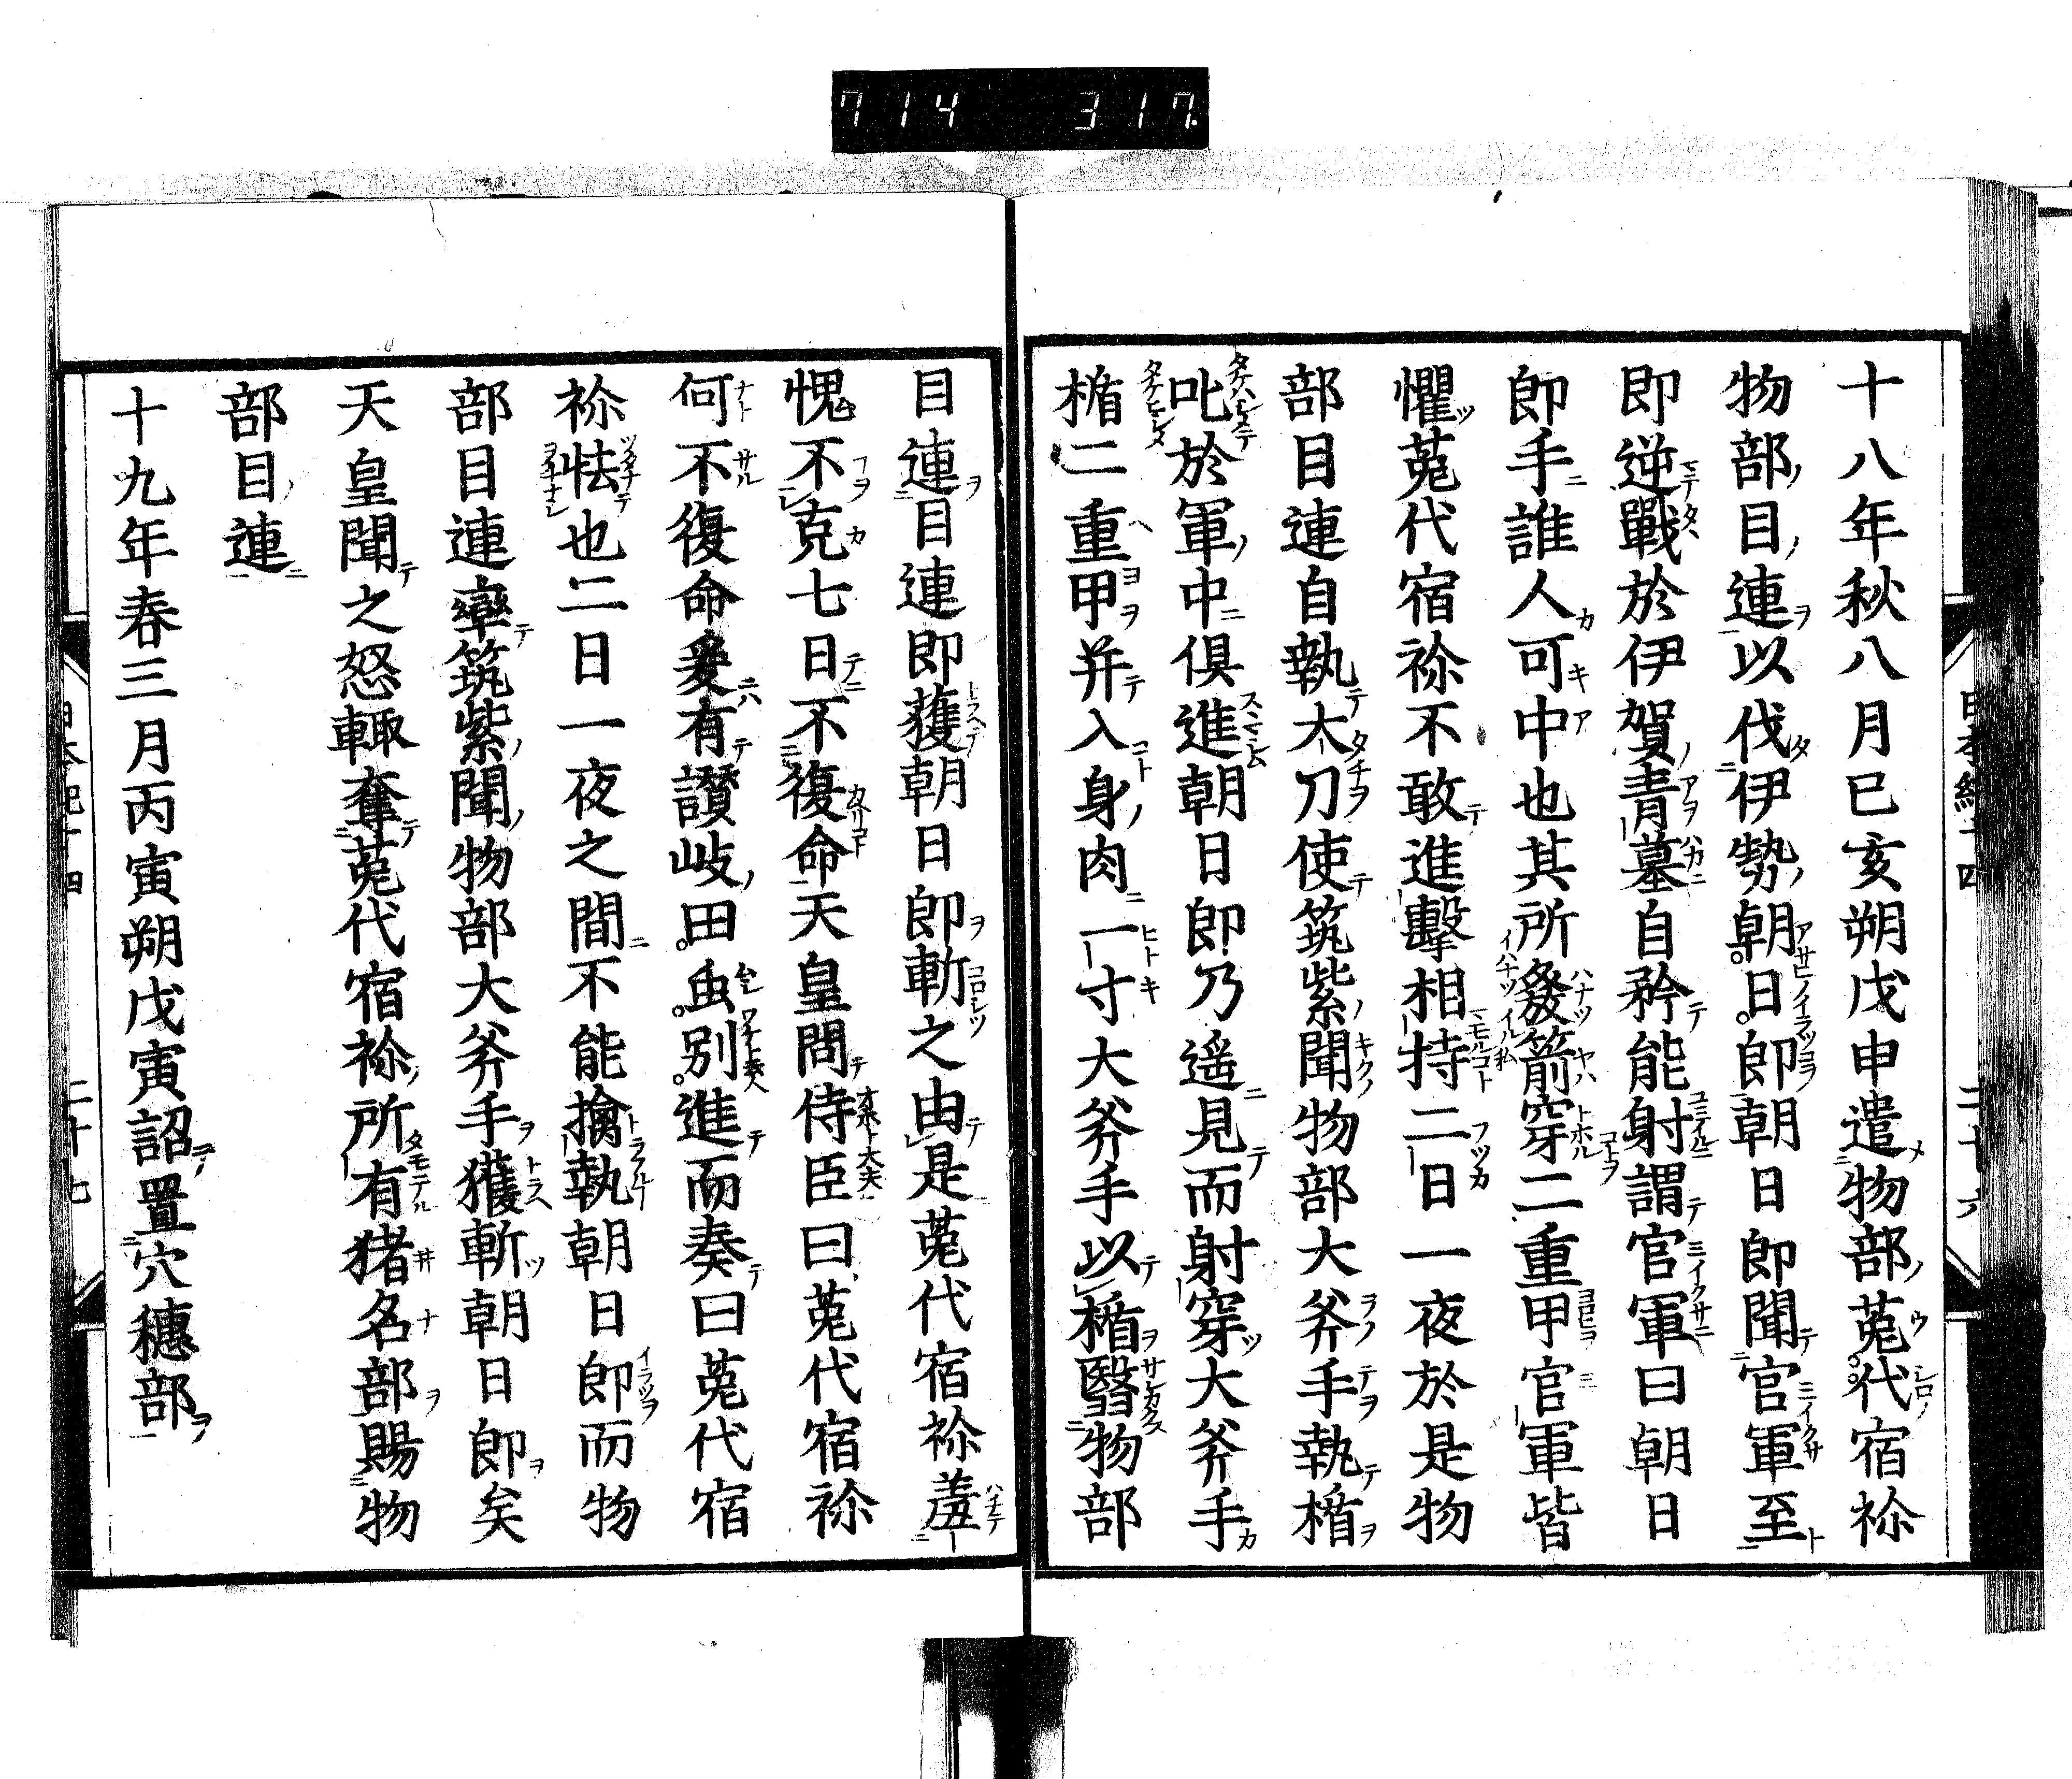 714 317
十八年秋八月己亥朔戊申遣物部菟代宿祢
物部目連以伐伊勢朝日郎朝日郎聞官軍至
即逆戰於伊賀青墓自矜能射謂官軍曰朝日
郎手誰人可中也其所發箭穿二重甲官軍皆
懼菟代宿祢不敢進擊相持二日一夜於是物
部目連自執大刀使筑紫聞物部大斧手執楯
叱於軍中俱進朝日郎乃遥見而射穿大斧手
楯二重甲并入身肉一寸大斧手以楯翳物部
目連目連即獲朝日郎斬之由是菟代宿祢羞
愧不克七日不復命天皇問侍臣曰菟代宿祢
何不復命爰有讃岐田虫別進而奏曰菟代宿
祢怯也二日一夜之間不能擒執朝日郎而物
部目連率筑紫聞物部大斧手獲斬朝日郎矣
天皇聞之怒輙奪菟代宿祢所有猪名部賜物
部目連
十九年春三月丙寅朔戊寅詔置穴穗部